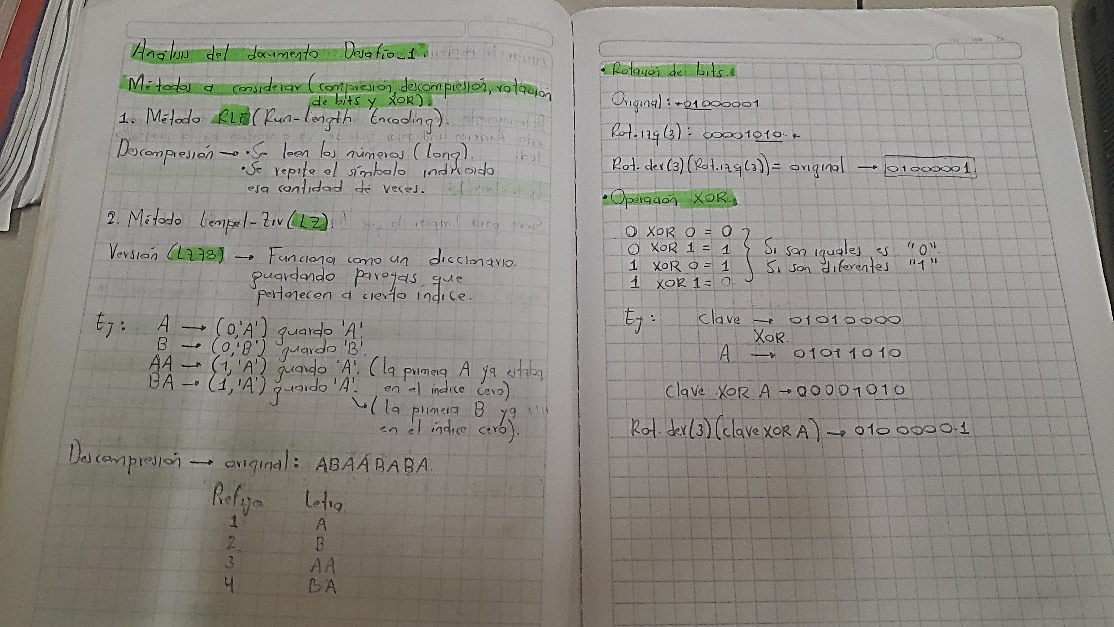 Análisis del documento Desafío_1.
Métodos a considerar (compresión, descompresión, rotación
de bits y XOR).
1. Método RLE (Run-length Encoding).
Descompresión → • Se leen los números (long).
• Se repite el símbolo indicado
esa cantidad de veces.
2. Método Lempel-Ziv (LZ).
Versión (LZ78) → Funciona como un diccionario.
guardando parejas que
pertenecen a cierto índice.
Ej: A → (0,'A') guardo 'A'.
B → (0,'B') guardo 'B'.
AA → (1,'A') guardo 'A'. (la primera A ya estaba
en el índice cero)
BA → (1,'A') guardo 'A'.
↳ (la primera B ya
en el índice cero).
Descompresión → original: ABAABABA.
Prefijo Letra
1 A
2 B
3 AA
4 BA
• Rotación de bits.
Original: →01000001
Rot.izq(3): 00001010.
Rot.der(3)(Rot.izq(3)) = original → 01000001
• Operación XOR.
0 XOR 0 = 0
0 XOR 1 = 1 } Si son iguales es "0".
1 XOR 0 = 1 } Si son diferentes "1"
1 XOR 1 = 0.
Ej: clave → 01010000
XOR.
A → 01011010
Clave XOR A → 00001010
Rot.der(3)(clave XOR A) → 01000001